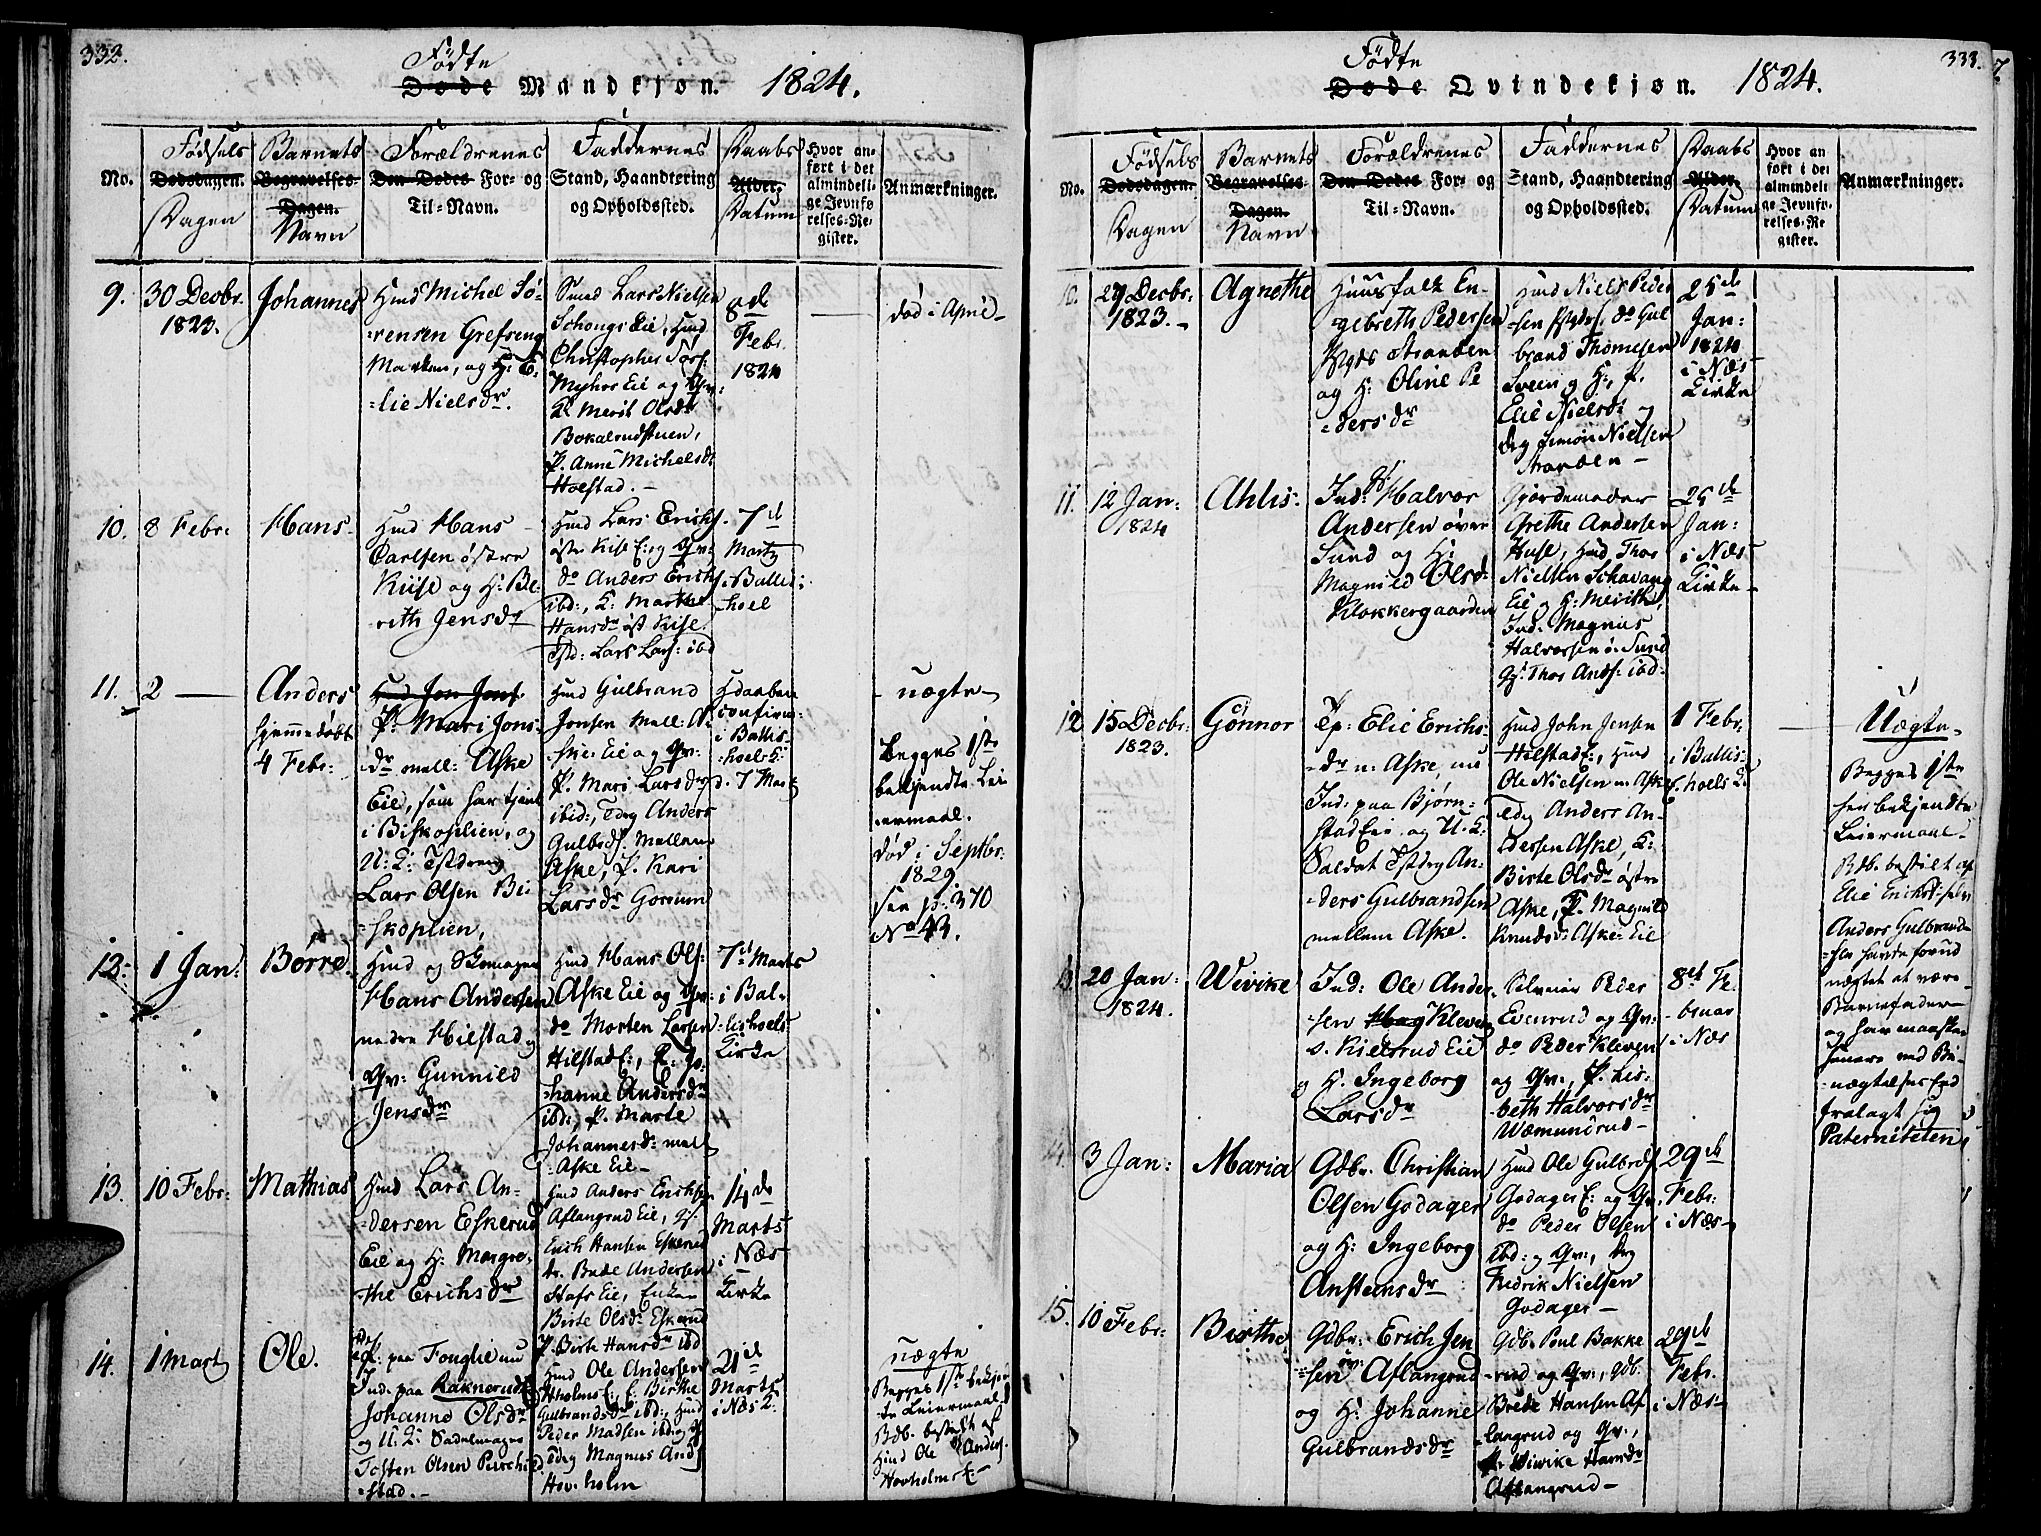 332.
Födte
Døde Mandkjøn. 1824.
No.
Födsels
Dødsdagen.
Dagen
Barnets
Begravelses-
Dagen.
Navn
Forældrenes
Den Dødes For- og
Til-Navn.
Faddernes
Stand, Haandtering
og Opholdssted.
Daabs
Alder.
Datum
Hvor an-
ført i det
almindeli-
ge Jevnfø-
relses-Re-
gister.
Anmærkninger.
9.
30 Decbr.
1823.
Johannes
Huusmd Michel Sö-
rensen Grefseng
og H: E-
lie Nielsdr.
Smed Lars Nielsen
Schougs Eie, Hmd
Christopher
Myhrs Eie og
Merit Olsdr
Bokalrudstuen,
P. Anne Michelsdr
Holstad.
8de
Febr.
1824
död i April
10.
8 Febr.
Hans
Hmd Hans
Carlsen östre
Kise og H: Be-
rith Jensdr
Hmd Lars Erichs.
östre Kise E: og Qv:
do Anders Erichs.
ibd:, E: Marthe
Hansdr öst Kise.
Lars Lars: ibd
7de
Martz
i Ballis-
hoel
11.
2
Anders
hjemmedöbt
4 Febr:
Hmd Jon Jons.
P: Mari Jons-
dr mell: Aske
Eie, som har tjent
i Biskoplien, og
U: C:
Lars Olsen Bi-
skoplien.
Hmd Gulbrand
Jonsen Mell: A-
ske Eie og Qv:
P. Mari Larsdr
ibid:, Anders
Gulbrds. Mellem
Aske, P. Kari
Larsdr
Hdaaben
confirm:
i Ballis-
hoel K:
d. 7 Martz
uægte
Begges 1ste
bekjendte Lei-
ermaal.
död i Septbr:
1829
see p: 370
No 43.
12.
1 Jan:
Börre
Hmd og Skomager
Hans Andersen
nedre Hilstad og
Qv: Gunnild
Jensdr
Hmd Hans Ols.
Aske Eie og Qv:
do Morten Larsen
Hilstad E:, E: Jo-
hanne Andersdr
ibd:, P. Marte
Johannesdr: mell
Aske Eie
7de Marts
i Bal-
lishoels
Kirke
13.
10 Febr:
Mathias
Hmd Lars An-
dersen Eskerud
Eie og H: Margre-
the Erichsdr
Hmd Anders Erichsen
Aflangrud Eie,
Erich Hansen Eskerud
Andersen
Eie, Enke
Birte Olsdr Eskerud
P. Birte Hansdr ibd
14de
Marts
i Næs
Kirke
14.
1 Mart
Ole.
paa Fouglie nu
Ind: paa Raknerud
Johanne Olsdr
og U: C: Sadelmager
Tosten Olsen
stad.
Hmd Ole Andersen
E: E. Birthe
Gulbrandsdr ibd:, Hmd
Peder Madsen ibd:
Magnus And
Hovholm
21de
Marts
i Næs K:
uægte
Begges 1ste bekjend-
te Leiermaal
Bdb. bestilt af
Hmd Ole Anders.
Hovholms E:
333.
7.
Födte
Døde Qvindekjøn. 1824.
No.
Födsels
Dødsdagen.
Dagen
Barnets
Begravelses
Dagen.
Navn
Forældrenes
Den Dødes For- og
Til-Navn.
Faddernes
Stand, Haandtering
og Opholdssted.
Daabs
Alder
Datum
Hvor an
ført i det
almindeli-
ge Jevnfø-
relses-Re
gister.
Anmærkninger.
10.
29 Decbr:
1823.
Agnethe
Huusfolk En-
gebreth Pedersen
Stranden
og H: Oline Pe
dersdr
Hmd Niels Peder
sen do Gul
brand Thomesen
Sveen og H:, P.
Elie Nielsdr og
Simon Nielsen
25de
Jan:
1824
i Næs
Kirke
11.
12 Jan:
1824
Ahlis:
Ind: Halvor
Andersen över
Sund og H:
Magnild Olsdr
Klokkergaarden
Gjordemoder
Grethe Andersen
Huse, Hmd Thor
Nielsen Schavang
Eie og H: Merithe,
Ind: Magnus
Halvorsen ö: Sund
Thor Ands: ibd:
25de
Jan:
i Næs
Kirke
12
15 Decbr:
1823.
Gönnor
Tp: Elie Erichs-
dr n: Aske, nu
Ind: paa Bjørn-
stad Eie og U. C:
Soldat An-
ders Gulbrandsen
mellem Aske.
Hmd John Jensen
Hilstad E:, Hmd
Ole Nielsen n: Aske
Anders An-
dersen Aske, E:
Birte Olsdr östre
Aske, P. Magnild
Knudsdr: Aske: Eie
1 Febr:
i Ballis-
hoels K
Uægte.
Begges 1ste
bekjendte
Leiermaal.
Bdb. bestilt af
Elie Erichsdr: selv
Anders Gulbrand-
sen havde forud
nægtet at være
Barnefader
og har maaskee
senere ved Be-
nægtelses Eed
fralagt sig
Paterniteten.
13.
20 Jan:
1824.
Wivike
Ind: Ole Ander-
sen Hag Kleven
s. Kielsrud Eie
og H. Ingeborg
Larsdr
Selveier Peder
Evenrud og Qv:
do Peder Kleven
og Qv:, P. Lis-
beth Halvorsdr
Wæmundrud
8de Fe-
bruar
i Næs
14.
3 Jan:
Maria
Gdbr. Christian
Olsen Godager
og H: Ingeborg
Anstensdr
Hmd Ole Gulbrds
Godager E: og Qv.
do Peder Olsen
ibd: og Qv:,
Fredrik Nielsen
Godager
29de
Febr:
i Næs
15.
10 Febr:
Birthe
Gdbr: Erich Jen
sen Aflangrud
og H: Johanne
Gulbrandsdr
Gdb. Poul Bakke
rud og Qv:, Gdb.
Brede Hansen Af
langrud og Qv.,
P. Wivike Hansdr
Aflangrud
29de
Febr.
i Næs